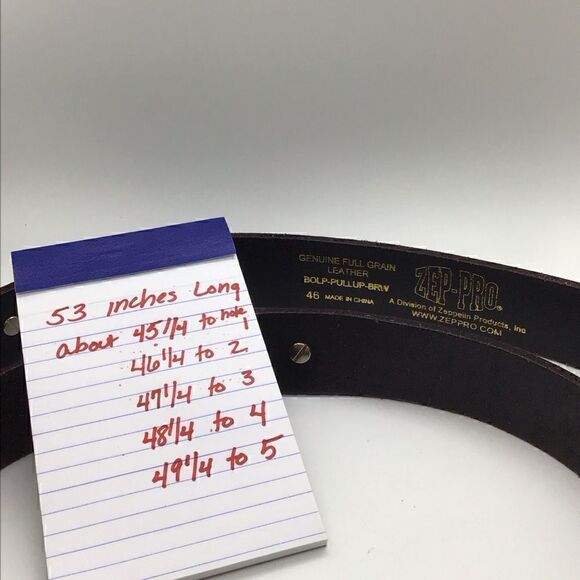 53 inches Long
about 45 1/4 to hole 1
46 1/4 to 2
47 1/4 to 3
48 1/4 to 4
49 1/4 to 5
GENUINE FULL GRAIN
LEATHER
BOLP-PULLUP-BRW
46 MADE IN CHINA
ZEP-PRO®
A Division of Zeppelin Products, Inc
WWW.ZEPPRO.COM